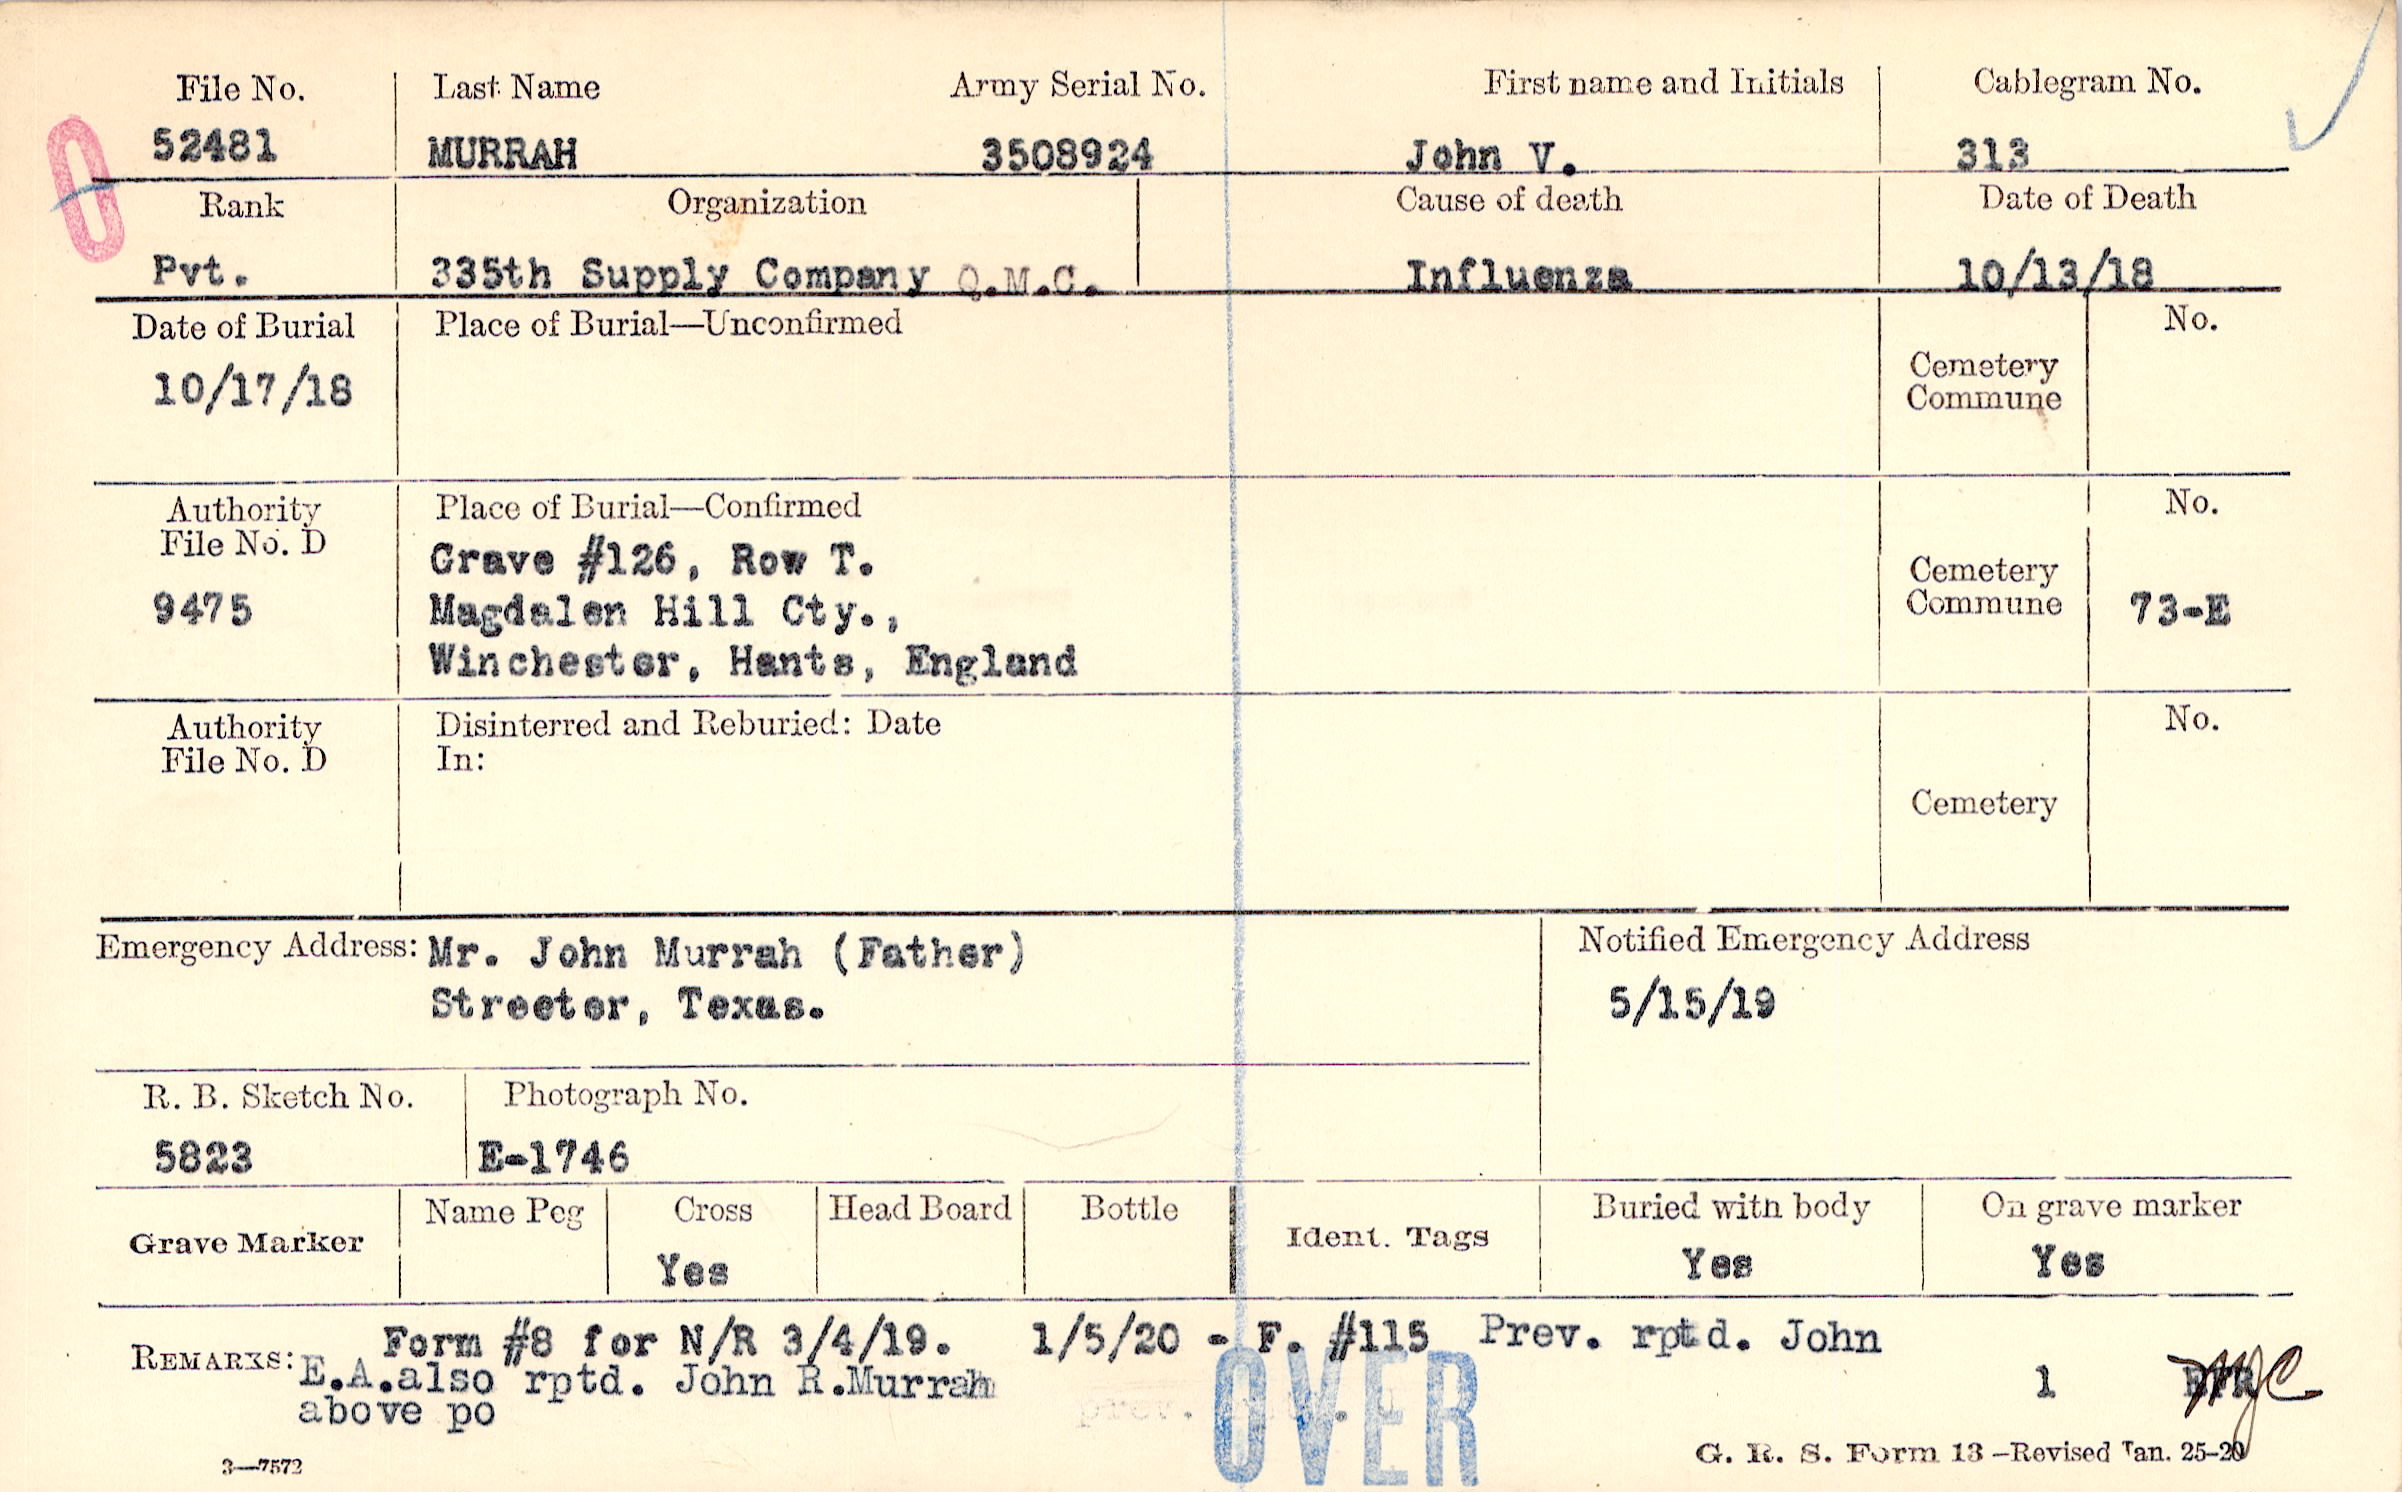 File No. Last Name Army Serial No. First name and Initials Cablegram No.
52481 MURRAH 3508924 John V. 313
Rank Organization Cause of death Date of Death
Pvt. 335th Supply Company Q.M.C. Influenza 10/13/18
Date of Burial Place of Burial—Unconfirmed No.
10/17/18
Cemetery
Commune
Authority Place of Burial—Confirmed No.
File No. D
Grave #126, Row T.
9475 Magdalen Hill Cty.,
Winchester, Hants, England
Cemetery
Commune 73-E
Authority Disinterred and Reburied: Date No.
File No. D In:
Cemetery
Emergency Address: Mr. John Murrah (Father)
Streeter, Texas.
Notified Emergency Address
5/15/19
R. B. Sketch No. Photograph No.
5823 E-1746
Grave Marker Name Peg Cross Head Board Bottle Ident. Tags Buried with body On grave marker
Yes Yes Yes
REMARKS: Form #8 for N/R 3/4/19. 1/5/20 - F. #115 Prev. rptd. John
E.A.also rptd. John R.Murrah
above po prev.
1
OVER
3—7572
G. R. S. Form 13—Revised Jan. 25-20